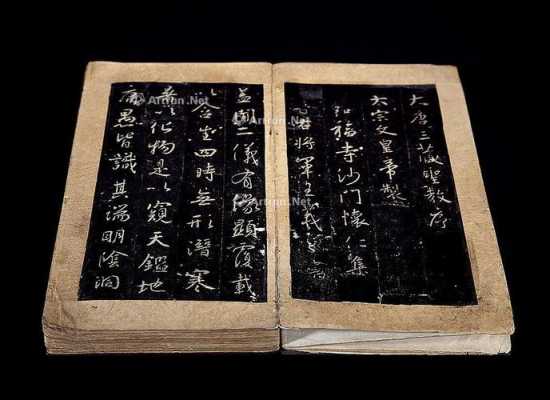 大唐三藏聖教序
太宗文皇帝製
弘福寺沙門懷仁集
右將軍王羲
蓋聞二儀有像顯覆載
以含生四時無形潛寒
暑以化物是以窺天鑑地
庸愚皆識其端明陰洞
Artron.Net
Artron.Net
Artron.Net
Artron.Net